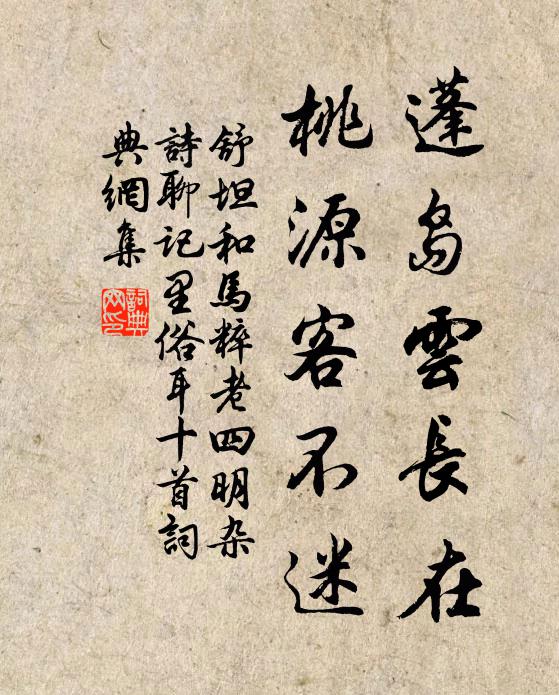 蓬岛雲長在
桃源客不迷
舒坦和馬粹老四明杂
詩聊记里俗耳十首詞
典網集
詞典
网印